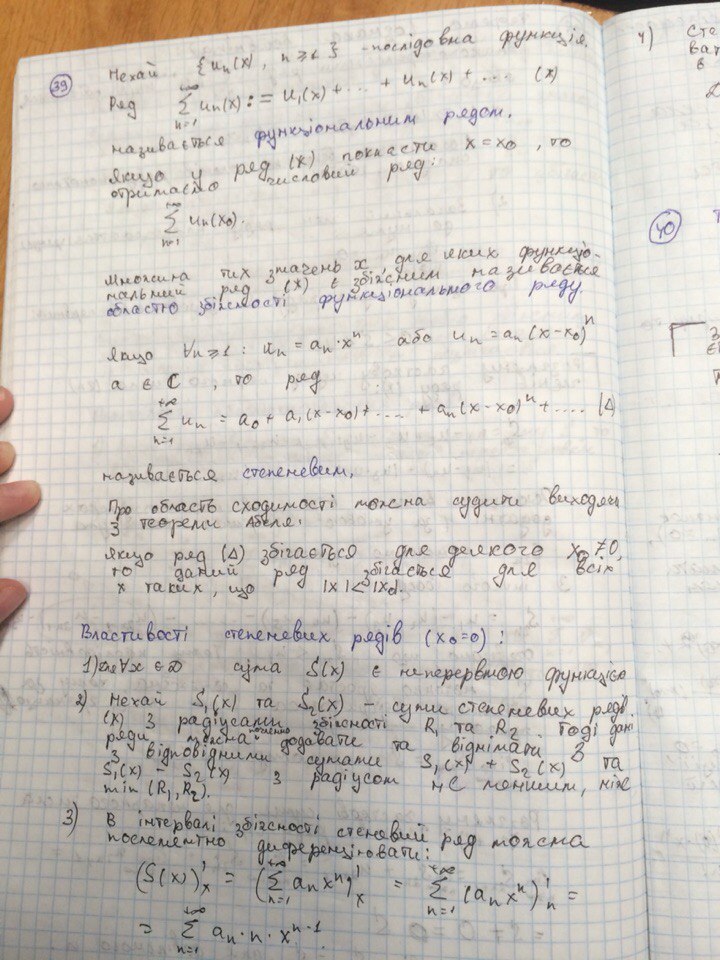 39
Нехай {uₙ(x), n ≥ 1} - послідовна функція.
Ряд ∑ₙ₌₁^{+∞} uₙ(x) := u₁(x) + ... + uₙ(x) + ... (*)
називається функціональним рядом.
Якщо у ряд (*) покласти x = x₀, то
отримаємо числовий ряд:
∑ₙ₌₁^{+∞} uₙ(x₀).
Множина тих значень x, для яких функціо-
нальний ряд (*) є збіжним називається
областю збіжності функціонального ряду.
Якщо ∀n ≥ 1 : uₙ = aₙ · xⁿ, або uₙ = aₙ(x-x₀)ⁿ
a ∈ C, то ряд
∑ₙ₌₁^{+∞} uₙ = a₀ + a₁(x-x₀) + .... + aₙ(x-x₀)ⁿ + .... (Δ)
називається степеневим.
Про область сходимості можна судити виходячи
з теореми Абеля:
Якщо ряд (Δ) збігається для деякого x₀ ≠ 0,
то даний ряд збігається для всіх
x таких, що |x| < |x₀|.
Властивості степеневих рядів (x₀=0) :
1) ∀x ∈ D сума S(x) є неперервною функцією
2) Нехай S₁(x) та S₂(x) – суми степеневих рядів
(*) з радіусами збіжності R₁ та R₂. Тоді дані
ряди можна почленно додавати та віднімати з
відповідними сумами S₁(x) + S₂(x) та
S₁(x) - S₂(x) з радіусом не меншим, ніж
min (R₁, R₂).
3) В інтервалі збіжності стеневий ряд можна
поелементно диференціювати:
(S(x))'ₓ = (∑ₙ₌₁^{+∞} aₙxⁿ)'ₓ = ∑ₙ₌₁^{+∞} (aₙxⁿ)'ₙ =
= ∑ₙ₌₁^{+∞} aₙ · n · xⁿ⁻¹
4) Сте
ват
в
40